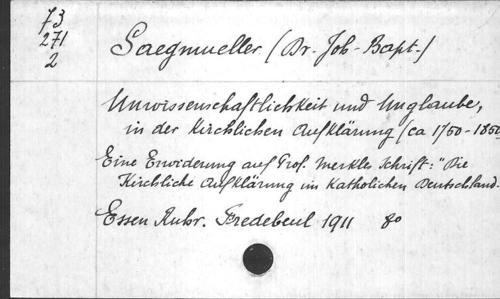 73
271
2
Saegmueller (Dr. Joh-Bapt.)
Unwissenschaftlichkeit und Unglaube,
in der kirchlichen Aufklärung (ca 1750-1850
Eine Erwiderung auf Prof. Merkle Schrift: "Die
Kirchliche Aufklärung im Katholichen Deutschland.
Essen Ruhr. Fredebeul 1911 8o